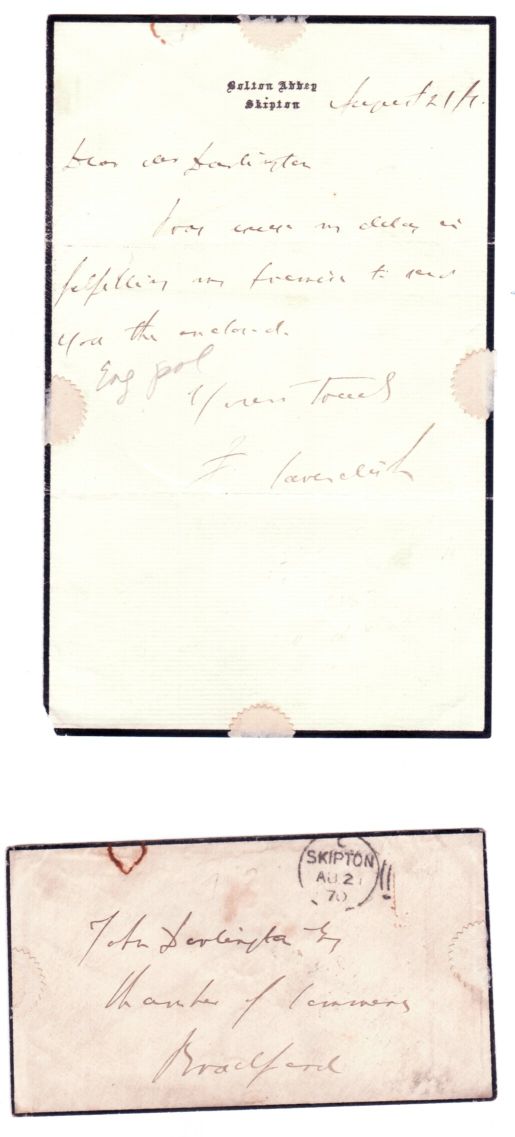 Bolton Abbey
Skipton
August 21/70
Dear Mr Darlington
Pray excuse my delay in
fulfilling my promise to send
you the enclosed.
Eng pol
Yours truly
F Cavendish
C
SKIPTON
AU 21
70
John Darlington Esq
Chamber of Commerce
Bradford